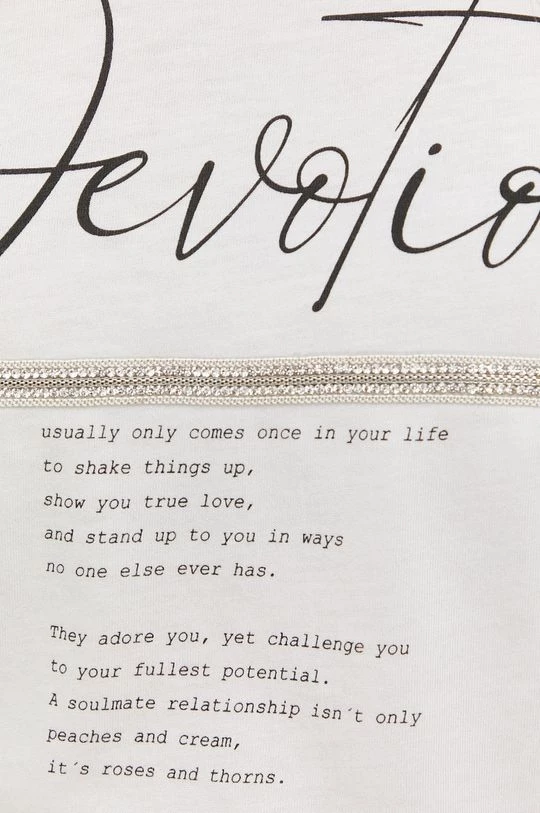 Devotio
usually only comes once in your life
to shake things up,
show you true love,
and stand up to you in ways
no one else ever has.
They adore you, yet challenge you
to your fullest potential.
A soulmate relationship isn´t only
peaches and cream,
it´s roses and thorns.